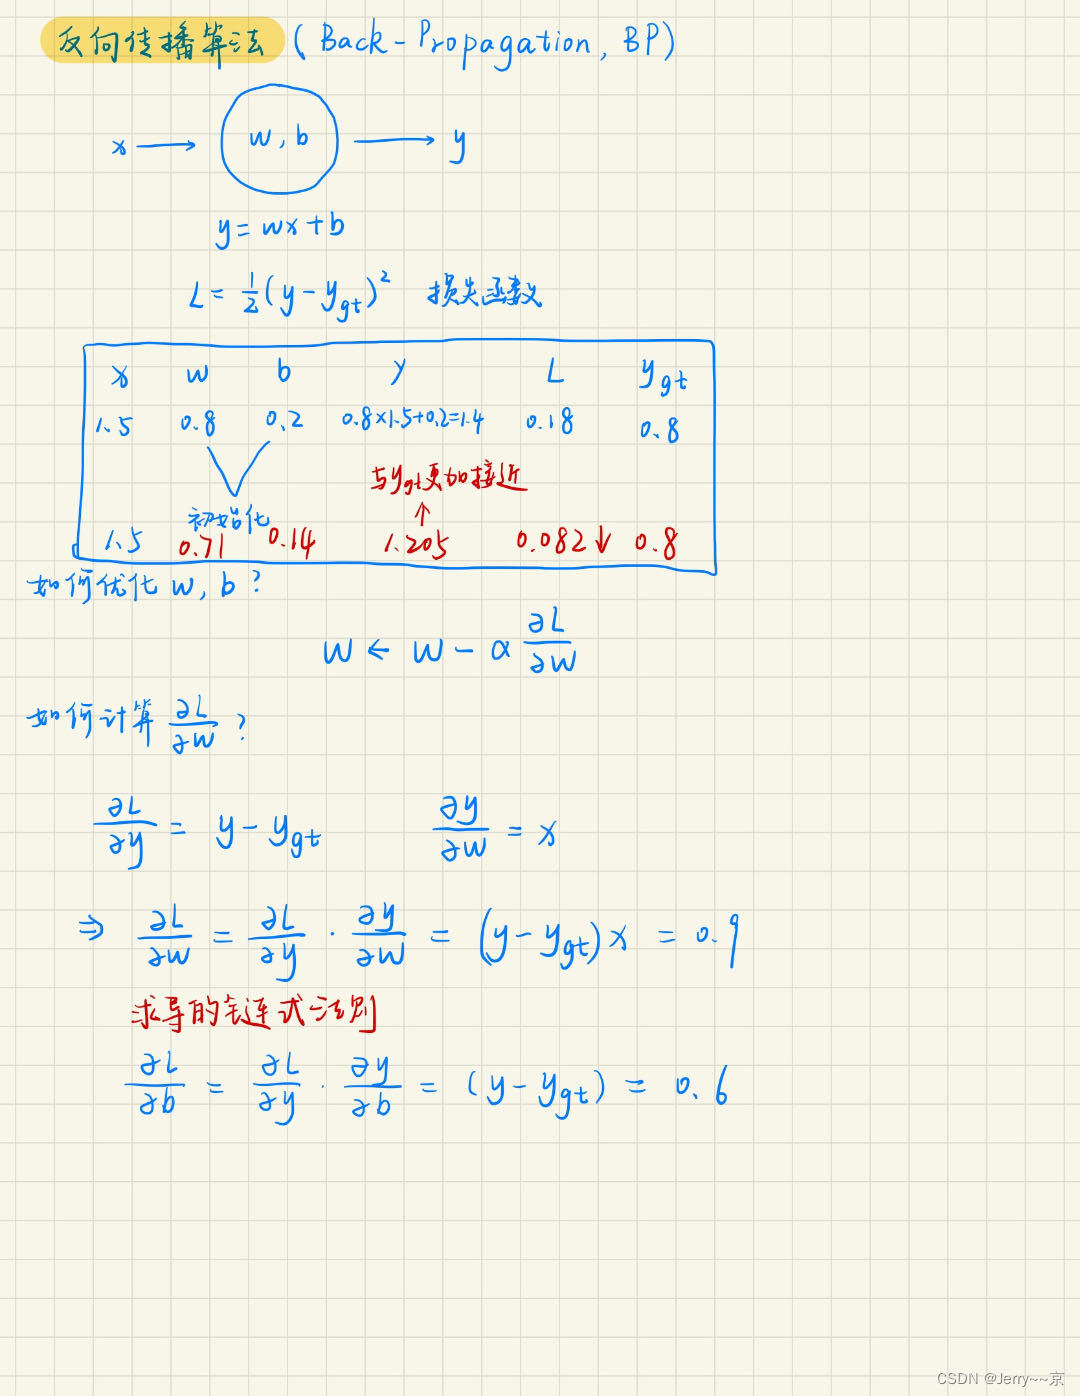 反向传播算法 (Back-Propagation, BP)
x → w, b → y
y = wx + b
L = 1/2 (y - y_gt)² 损失函数
x w b y L y_gt
1.5 0.8 0.2 0.8×1.5+0.2=1.4 0.18 0.8
与y_gt更加接近
初始化 ↑
1.5 0.71 0.14 1.205 0.082↓ 0.8
如何优化 w, b?
w ← w - α ∂L/∂w
如何计算 ∂L/∂w ?
∂L/∂y = y - y_gt ∂y/∂w = x
⇒ ∂L/∂w = ∂L/∂y · ∂y/∂w = (y - y_gt)x = 0.9
求导的链式法则
∂L/∂b = ∂L/∂y · ∂y/∂b = (y - y_gt) = 0.6
CSDN @Jerry~~京